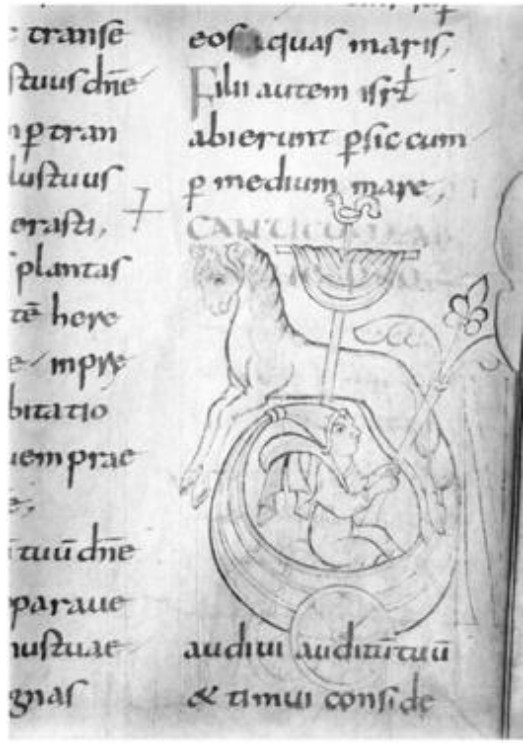 transfe
stuus dñe
ꝑ tran
lustuus
erasti,
plantas
tẽ here
e mpye
bitatio
uem prae
e,
tuũ dñe
parauer
nustuae
gnas
eos aquas maris,
Filii autem isrł
abierunt ꝑ sic cum
ꝑ medium mare,
CANTICO
audiui auditũ tuũ
& timui conside